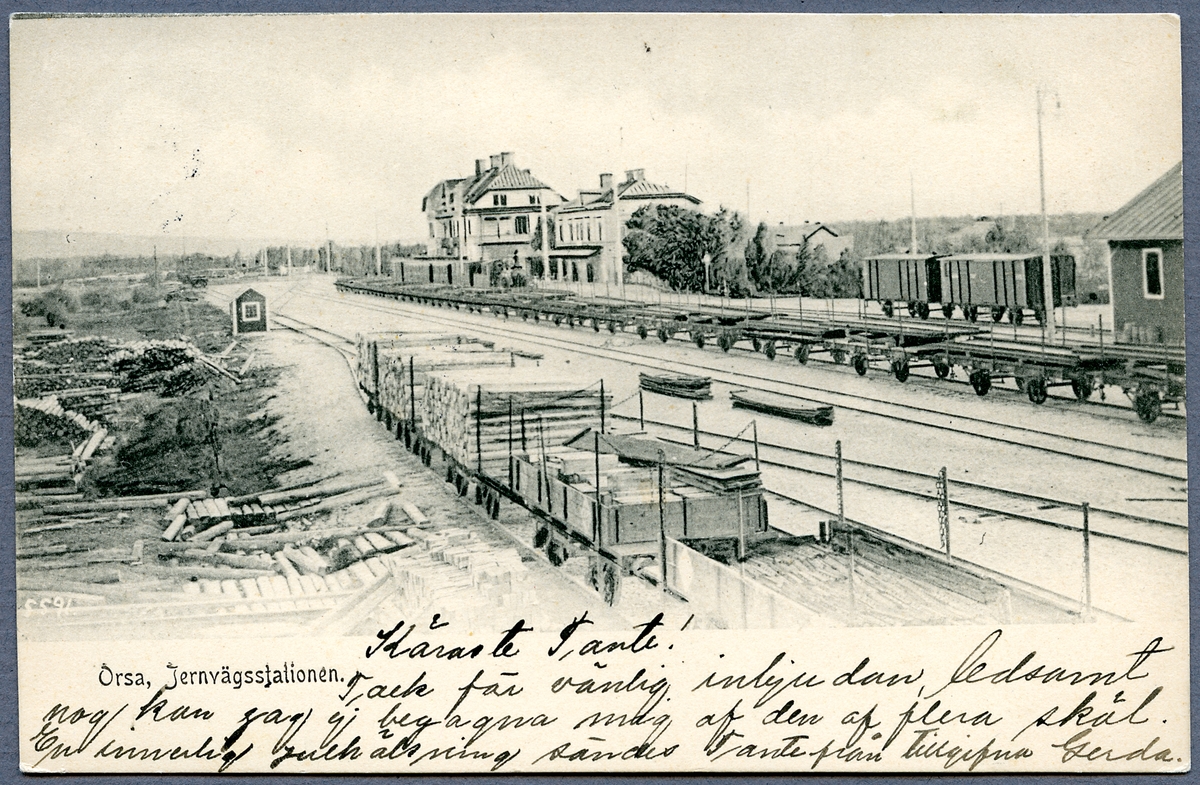 1655
Käraste Tante!
Orsa, Jernvägsstationen.
Tack för vänlig inbjudan, ledsamt
nog kan jag ej begagna mig af den af flera skäl.
En innerlig julhälsning sändes Tante från tillgifna Gerda.